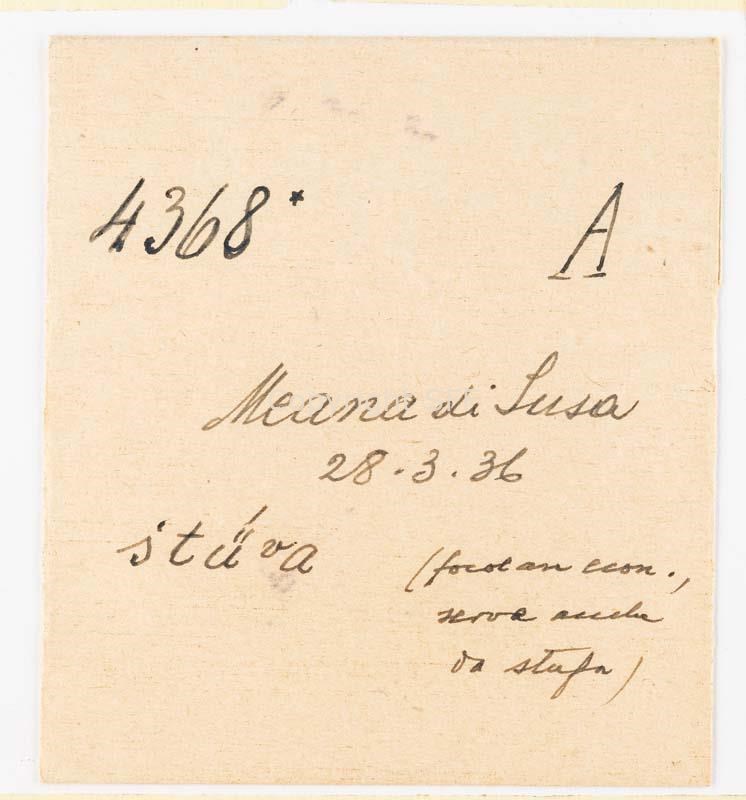 4368* A
Meana di Susa
28.3.36
štǘva (focolare econ.,
serve anche
da stufa)